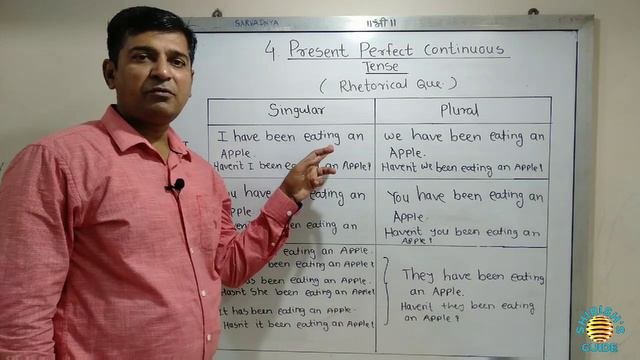 SARVADNYA
॥श्री॥
4. Present Perfect Continuous
Tense
( Rhetorical Que. )
Singular
Plural
I have been eating an
Apple.
Havent I been eating an Apple?
we have been eating an
Apple.
Havent we been eating an Apple?
have been eating an
Apple.
been eating an
You have been eating an
Apple.
Havent you been eating an
Apple?
eating an Apple.
been eating an Apple?
has been eating an Apple.
Hasnt She been eating an Apple?
It has been eating an Apple.
Hasnt it been eating an Apple?
They have been eating
an Apple.
Havent they been eating
an Apple?
SHIRISH'S
GUIDE